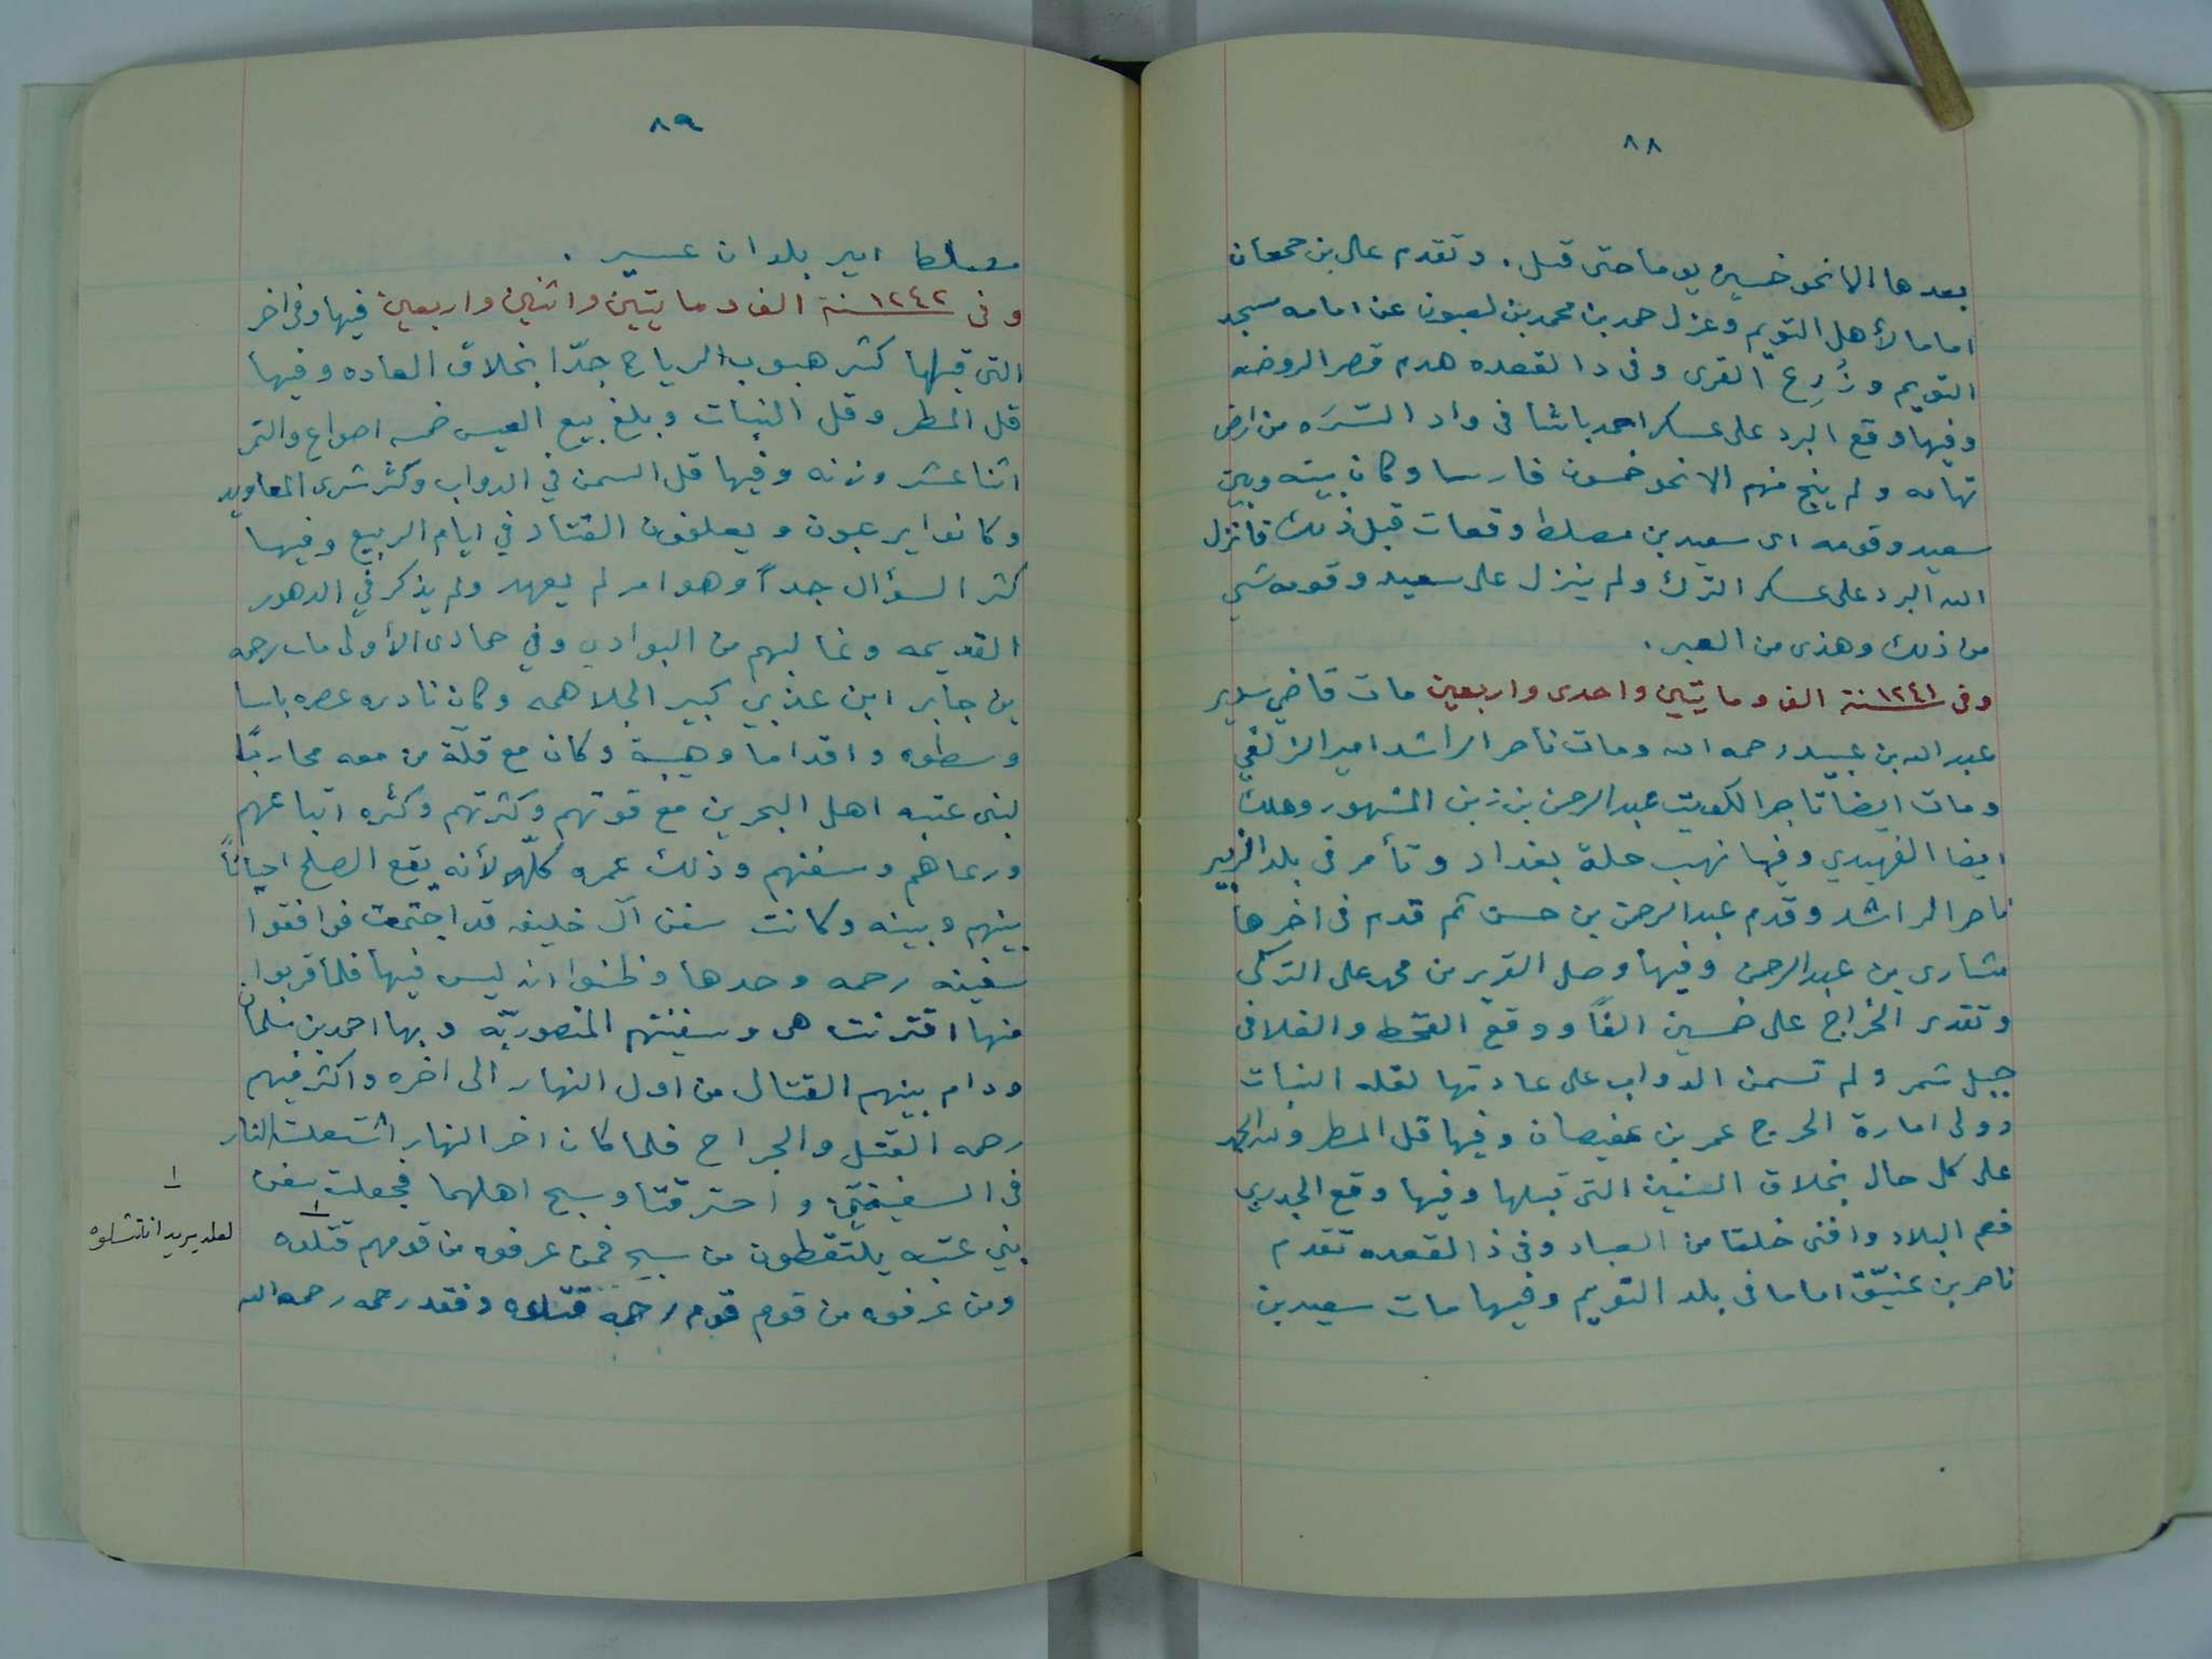 ٨٨
بعدها الا نحو خمسين يوما حتى قتل . وتقدم عالى بن جمعان
اماما لأهل التويم وعزل حمد بن محمد بن لعبون عن امامه مسجد
التويم وزُرِع القرى وفى ذا القعده هدم قصر الروضه
وفيها وقع البرد على عسكر احمد باشا فى واد السّرَه من ارض
تهامه ولم ينج منهم الا نحو خمسون فارسا وكان بينه وبين
سعيد وقومه اى سعيد بن مصلط وقعات قبل ذلك فأنزل
الله البرد على عسكر الترك ولم ينزل على سعيد وقومه شي
من ذلك وهذى من العبر .
وفى ١٢٤١ سنة الف ومايتين واحدى واربعين مات قاضي سدير
عبد الله بن عبيد رحمه الله ومات ناصر الراشد امير الزلفي
ومات ايضا تاجر الكويت عبد الرحمن بن زبن المشهور وهلك
ايضا الفهيدي وفيها نهب حلة بغداد وتأمر فى بلد الزبير
ناصر الراشد وقدم عبد الرحمن بن حسن ثم قدم فى اخرها
مشارى بن عبد الرحمن وفيها وصل التزير من محمد على التركى
وتقدر الخراج على خمسين الفاً ووقع القحط والغلا فى
جبل شمر ولم تسمن الدواب على عادتها لقله النبات
وولى امارة الخرج عمر بن عفيصان وفيها قل المطر ولله الحمد
على كل حال بخلاف السنين التى قبلها وفيها وقع الجدري
فعم البلاد وافنى خلقا من العباد وفى ذ القعده تقدم
ناصر بن عنيّق اماما فى بلد التويم وفيها مات سعيد بن
٨٩
مصلط امير بلدان عسير .
وفى ١٢٤٢ سنة الف ومايتين واثنين واربعين فيها وفى اخر
التى قبلها كثر هبوب الرياح جدّا بخلاف العاده وفيها
قل المطر وقل النبات وبلغ بيع العيس خمسه اصواع والتمر
اثنا عشر وزنه وفيها قل السمن في الدواب وكثر شرى المعاويد
وكانوا يرعبون ويعلفون القتاد في ايام الربيع وفيها
كثر السؤال جداً وهو امر لم يعهد ولم يذكر في الدهور
القديمه وغالبهم من البوادي وفي جمادى الأولى مات رحمه
بن جابر ابن عذبي كبير الجلاهمه وكان نادره عصره باسا
وسطوه واقداما وهيبة وكان مع قلّة من معه محاربًا
لبنى عتبه اهل البحرين مع قوتهم وكثرتهم وكثره اتباعهم
ورعاهم وسفنهم وذلك عمره كلّه لأنه يقع الصلح احياناً
بينهم وبينه وكانت سفن آل خليفه قد اجتمعت فوافقوا
سفينه رحمه وحدها وظنوا انه ليس فيها فلما قربوا
منها اقترنت هى وسفينتهم المنصوريّه وبها احمد بن سلمان
ودام بينهم القتال من اول النهار الى اخره واكثر فيهم
رحمه القتل والجراح فلما كان اخر النهار اشتعلت النار
فى السفينتين واحترقتا وسبح اهلهما فجعلت سفن
بني عتبه يلتقطون من سبح فمن عرفوه من قومهم قتلوه ١
ومن عرفوه من قوم رحمه قتلوه وفقد رحمه رحمه الله
١
لعله يريد انتشلوه